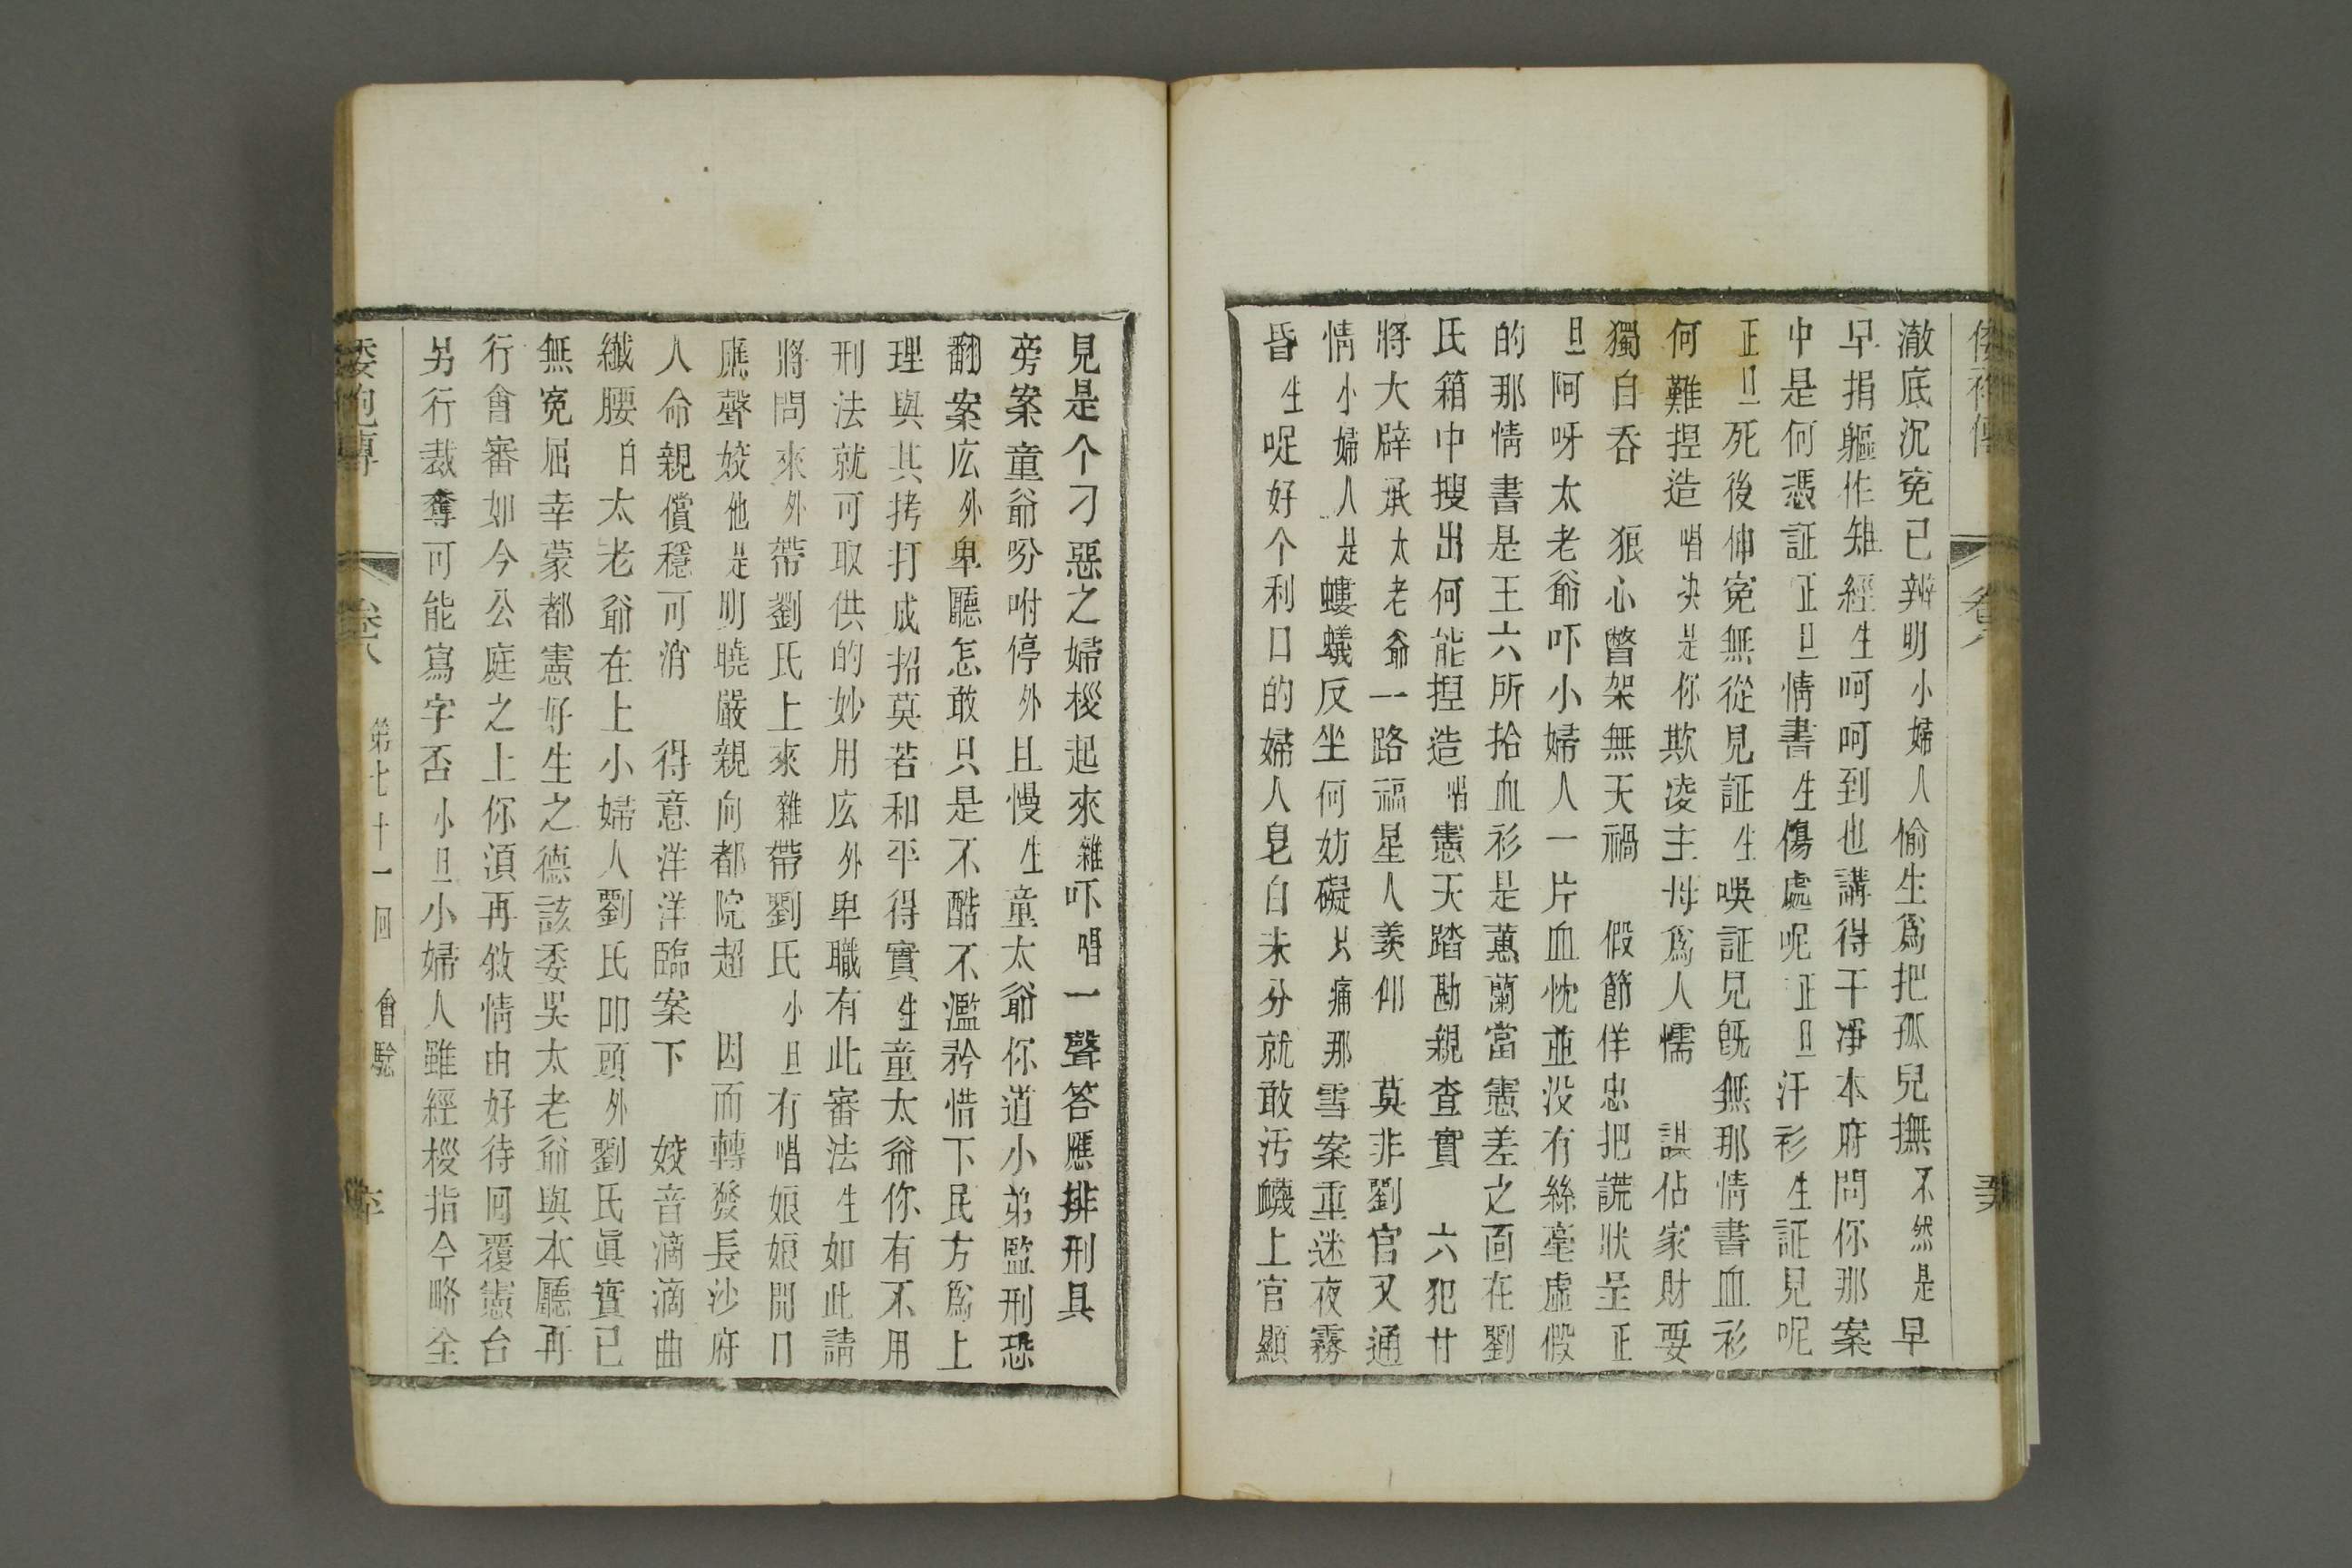 澈底沉寃已辨明小婦人偷生爲把孤兒撫不然是早
早捐軀作雉經生呵呵到也講得干凈本府問你那案
中是何憑証正旦情書生傷處呢正旦汗衫生証見呢
正旦死後伸寃無從見証生唉証見旣無那情書血衫
何難捏造唱决是你欺凌主母爲人懦 謀佔家財要
獨自吞 狠心瞥架無天禍 假節佯忠把謊狀呈正
旦阿呀太老爺吓小婦人一片血忱並没有絲毫虛假
的那情書是王六所拾血衫是蕙蘭當憲差之面在劉
氏箱中搜出何能捏造唱憲天踏勘親查實 六犯廿
將大辟承太老爺一路福星人羨仰 莫非劉官又通
情小婦人是螻蟻反坐何妨礙只痛那雪案重迷夜霧
昏生哫好个利口的婦人皂白未分就敢汚衊上官顯
卷八
見是个刁惡之婦桚起來雜吓唱一聲答應排刑具
旁案童爺吩咐停外且慢生童太爺你道小弟監刑恐
翻案庅外卑廳怎敢只是不酷不濫矜惜下民方爲上
理與其拷打成招莫若和平得實生童太爺你有不用
刑法就可取供的妙用庅外卑職有此審法生如此請
將問來外帶劉氏上來雜帶劉氏小旦有唱娘娘開口
應聲姣他是明曉嚴親向都院超 因而轉發長沙府
人命親償穩可消 得意洋洋臨案下 姣音滴滴曲
纖腰白太老爺在上小婦人劉氏叩頭外劉氏眞實已
無寃屈幸蒙都憲好生之德該委吳太老爺與本廳再
行會審如今公庭之上你湏再敘情由好待囘覆憲台
另行裁奪可能寫字否小旦小婦人雖經桚指今略全
倭袍傳 卷八 第七十一回 會驗 卒